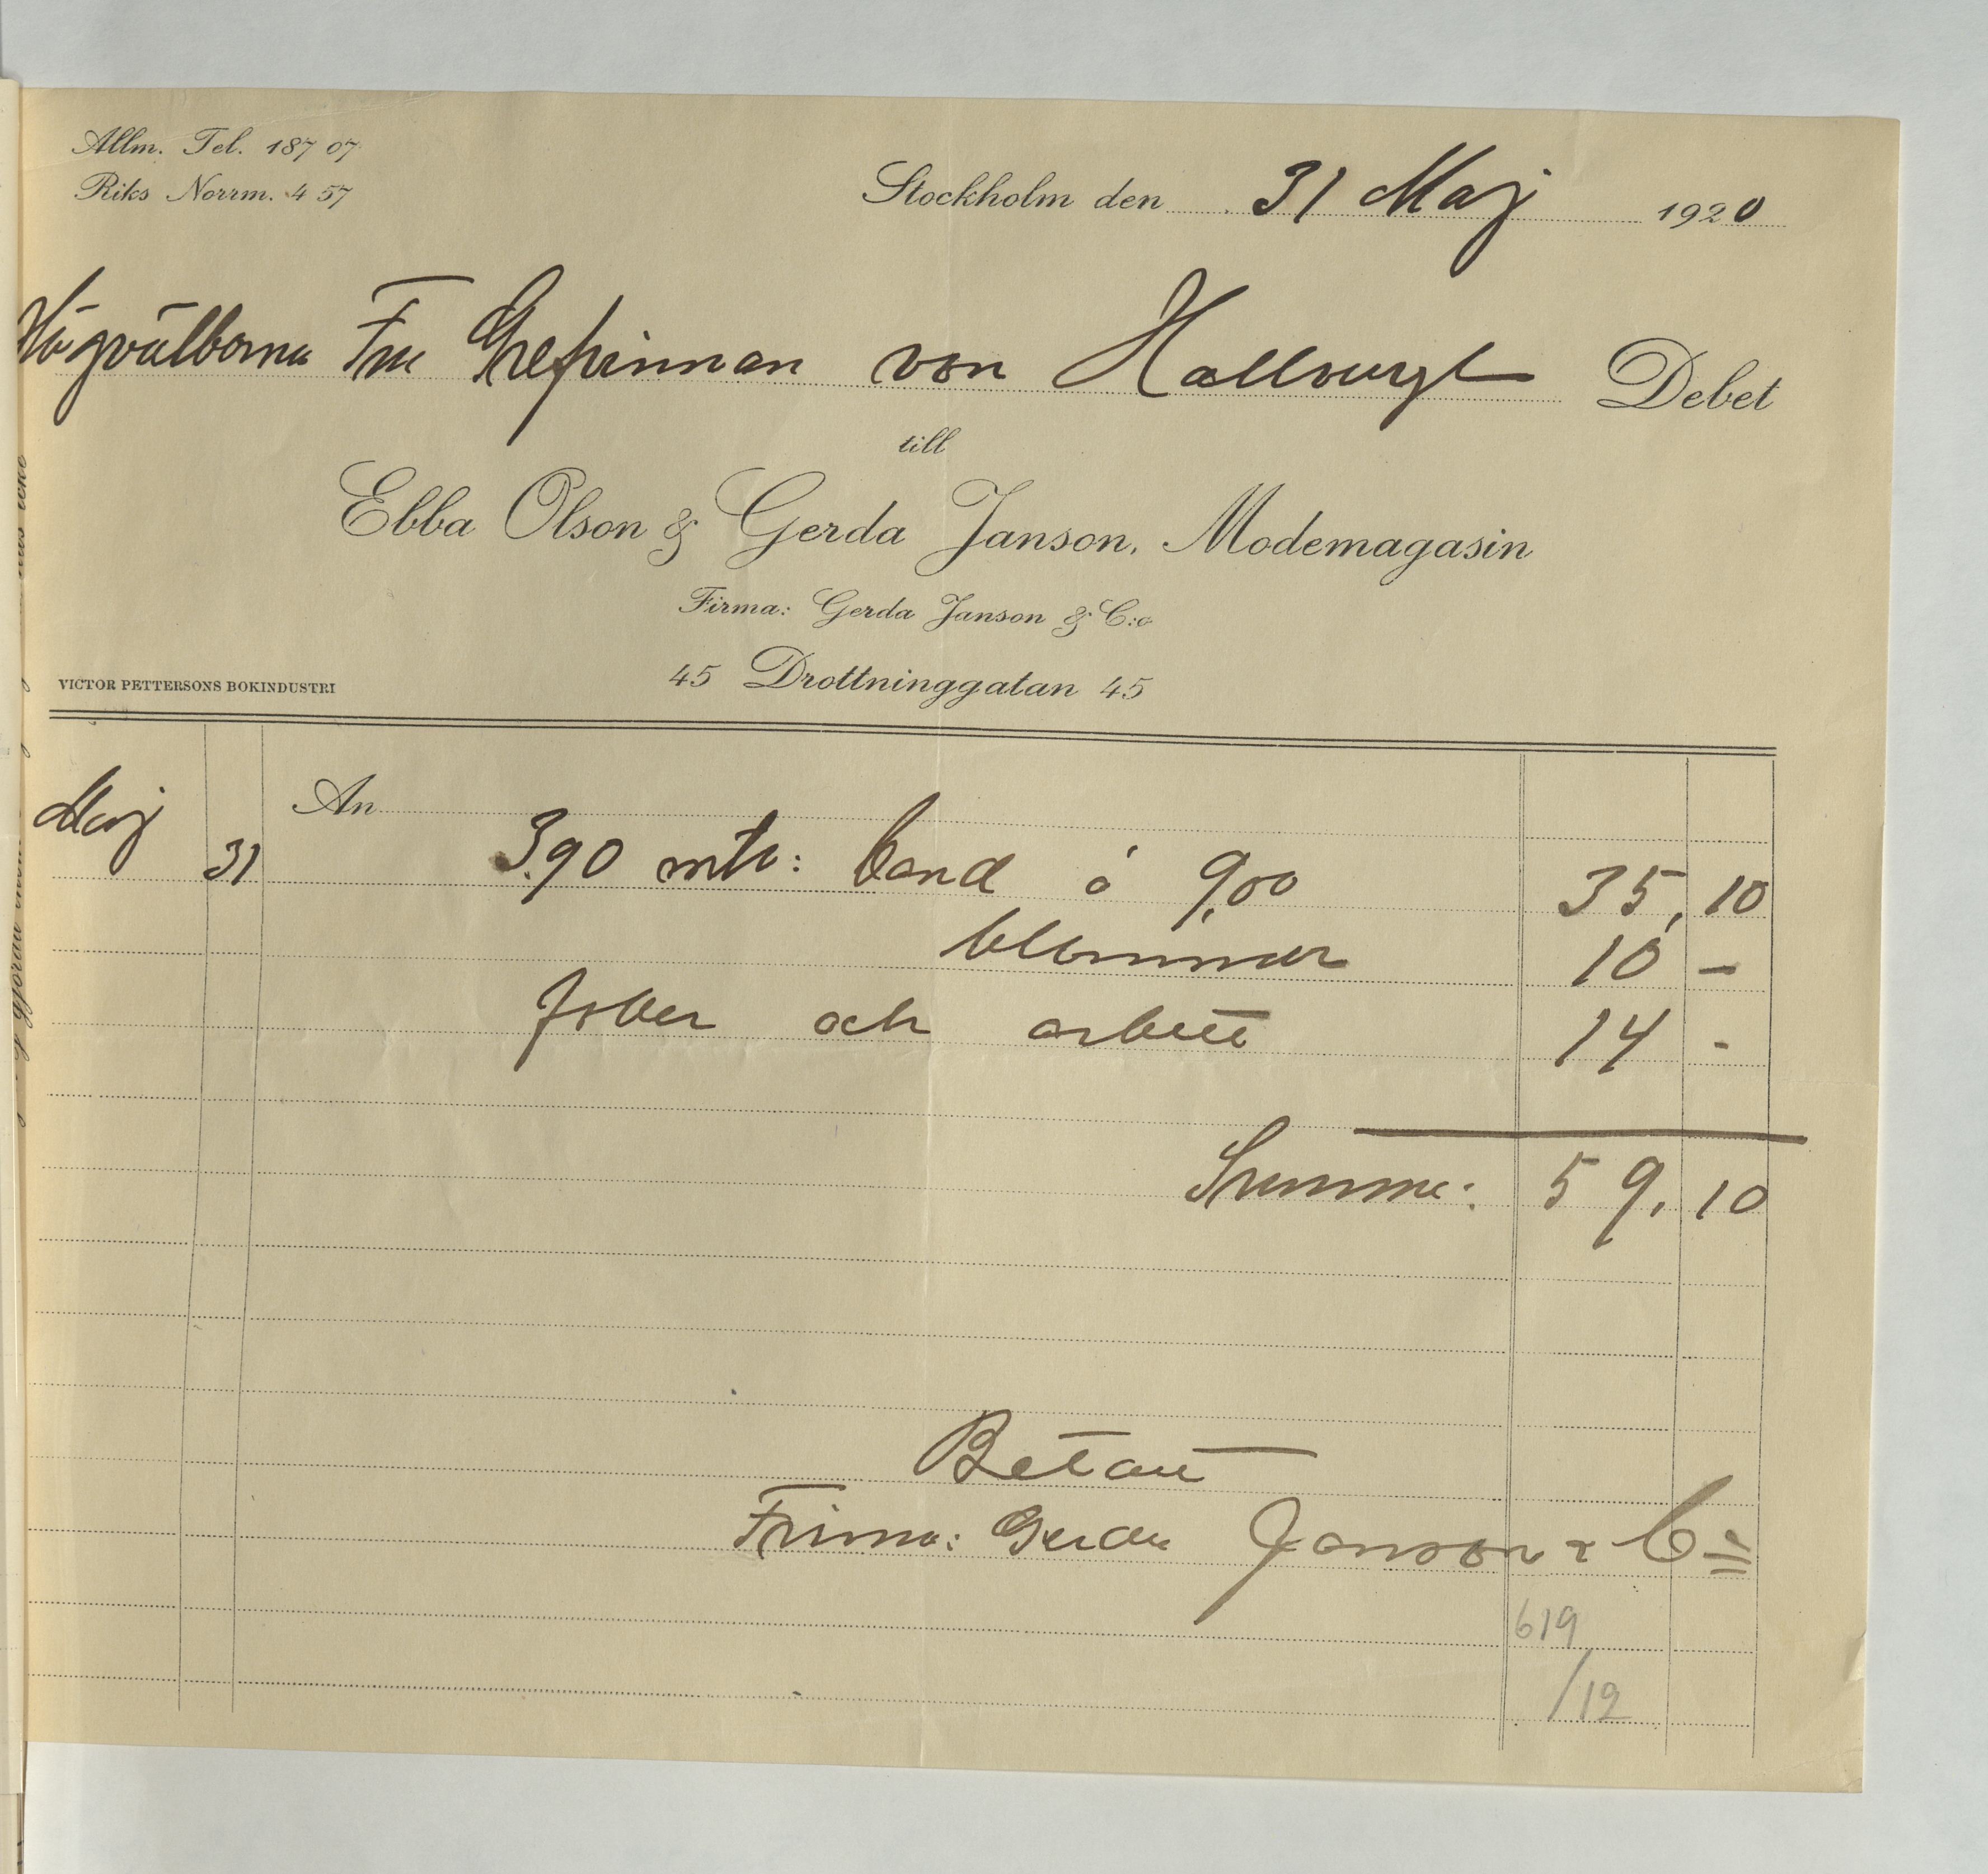 Allm. Tel. 187 07
Riks Norrm. 4 57
Stockholm den 31 Maj 1920
Högvälborna Fru Grefvinnan von Hallwyl Debet
till
Ebba Olson & Gerda Janson, Modemagasin
Firma: Gerda Janson & C:o
45 Drottninggatan 45
VICTOR PETTERSONS BOKINDUSTRI
An
Maj 31 3.90 mtr: band á 9,00 35,10
blommor 10 -
foder och arbete 14 -
Summa: 59,10
Betalt
Firma: Gerda Janson & Co
619
/12